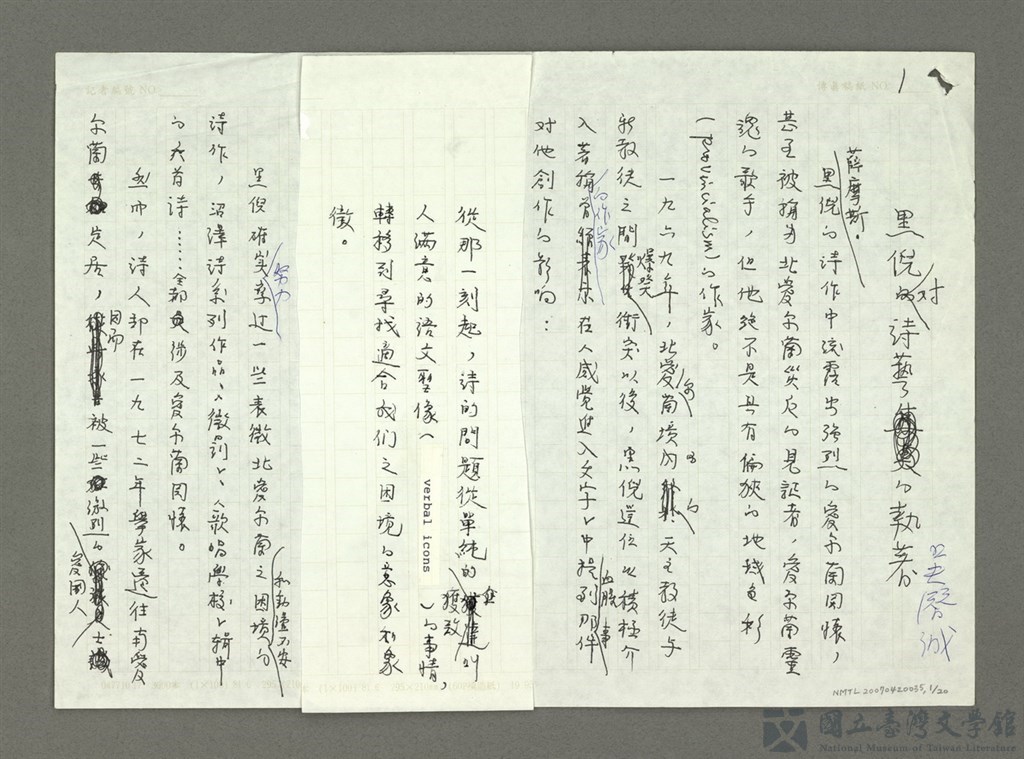 1
黑倪對詩藝的執著
吳潛誠
薛摩斯·
黑倪的詩作中流露出強烈的愛尔蘭関懷，
甚至被稱為北愛尔蘭災厄的見証者，愛尔蘭靈
魂的歌手，但他絕不是具有偏狹的地域色彩
(provincialism)的作家。
一九六九年，北愛尔蘭境內的天主教徒与
新教徒之間爆發衝突以後，黑倪這位以積極介
入著稱的作家在人感覺進入文字中提到那件血腥事
对他創作的影响：
從那一刻起，詩的問題從單純的
人滿意的語文塑像（verbal icons）的事情，
轉移到尋找適合我们之困境的意象和象
徵。
黑倪確實努力过一些表徵北愛尔蘭之困境和動盪不安的
詩作，沼澤詩系列作品、〈徵罰〉、〈歌唱學校〉輯中
的六首詩……全都涉及愛尔蘭関懷。
然而，詩人卻在一九七二年舉家遷往南愛
尔蘭定居，因而被一些激烈的愛國人士
NMTL20070420035,1/20
國立臺灣文學館
National Museum of Taiwan Literature